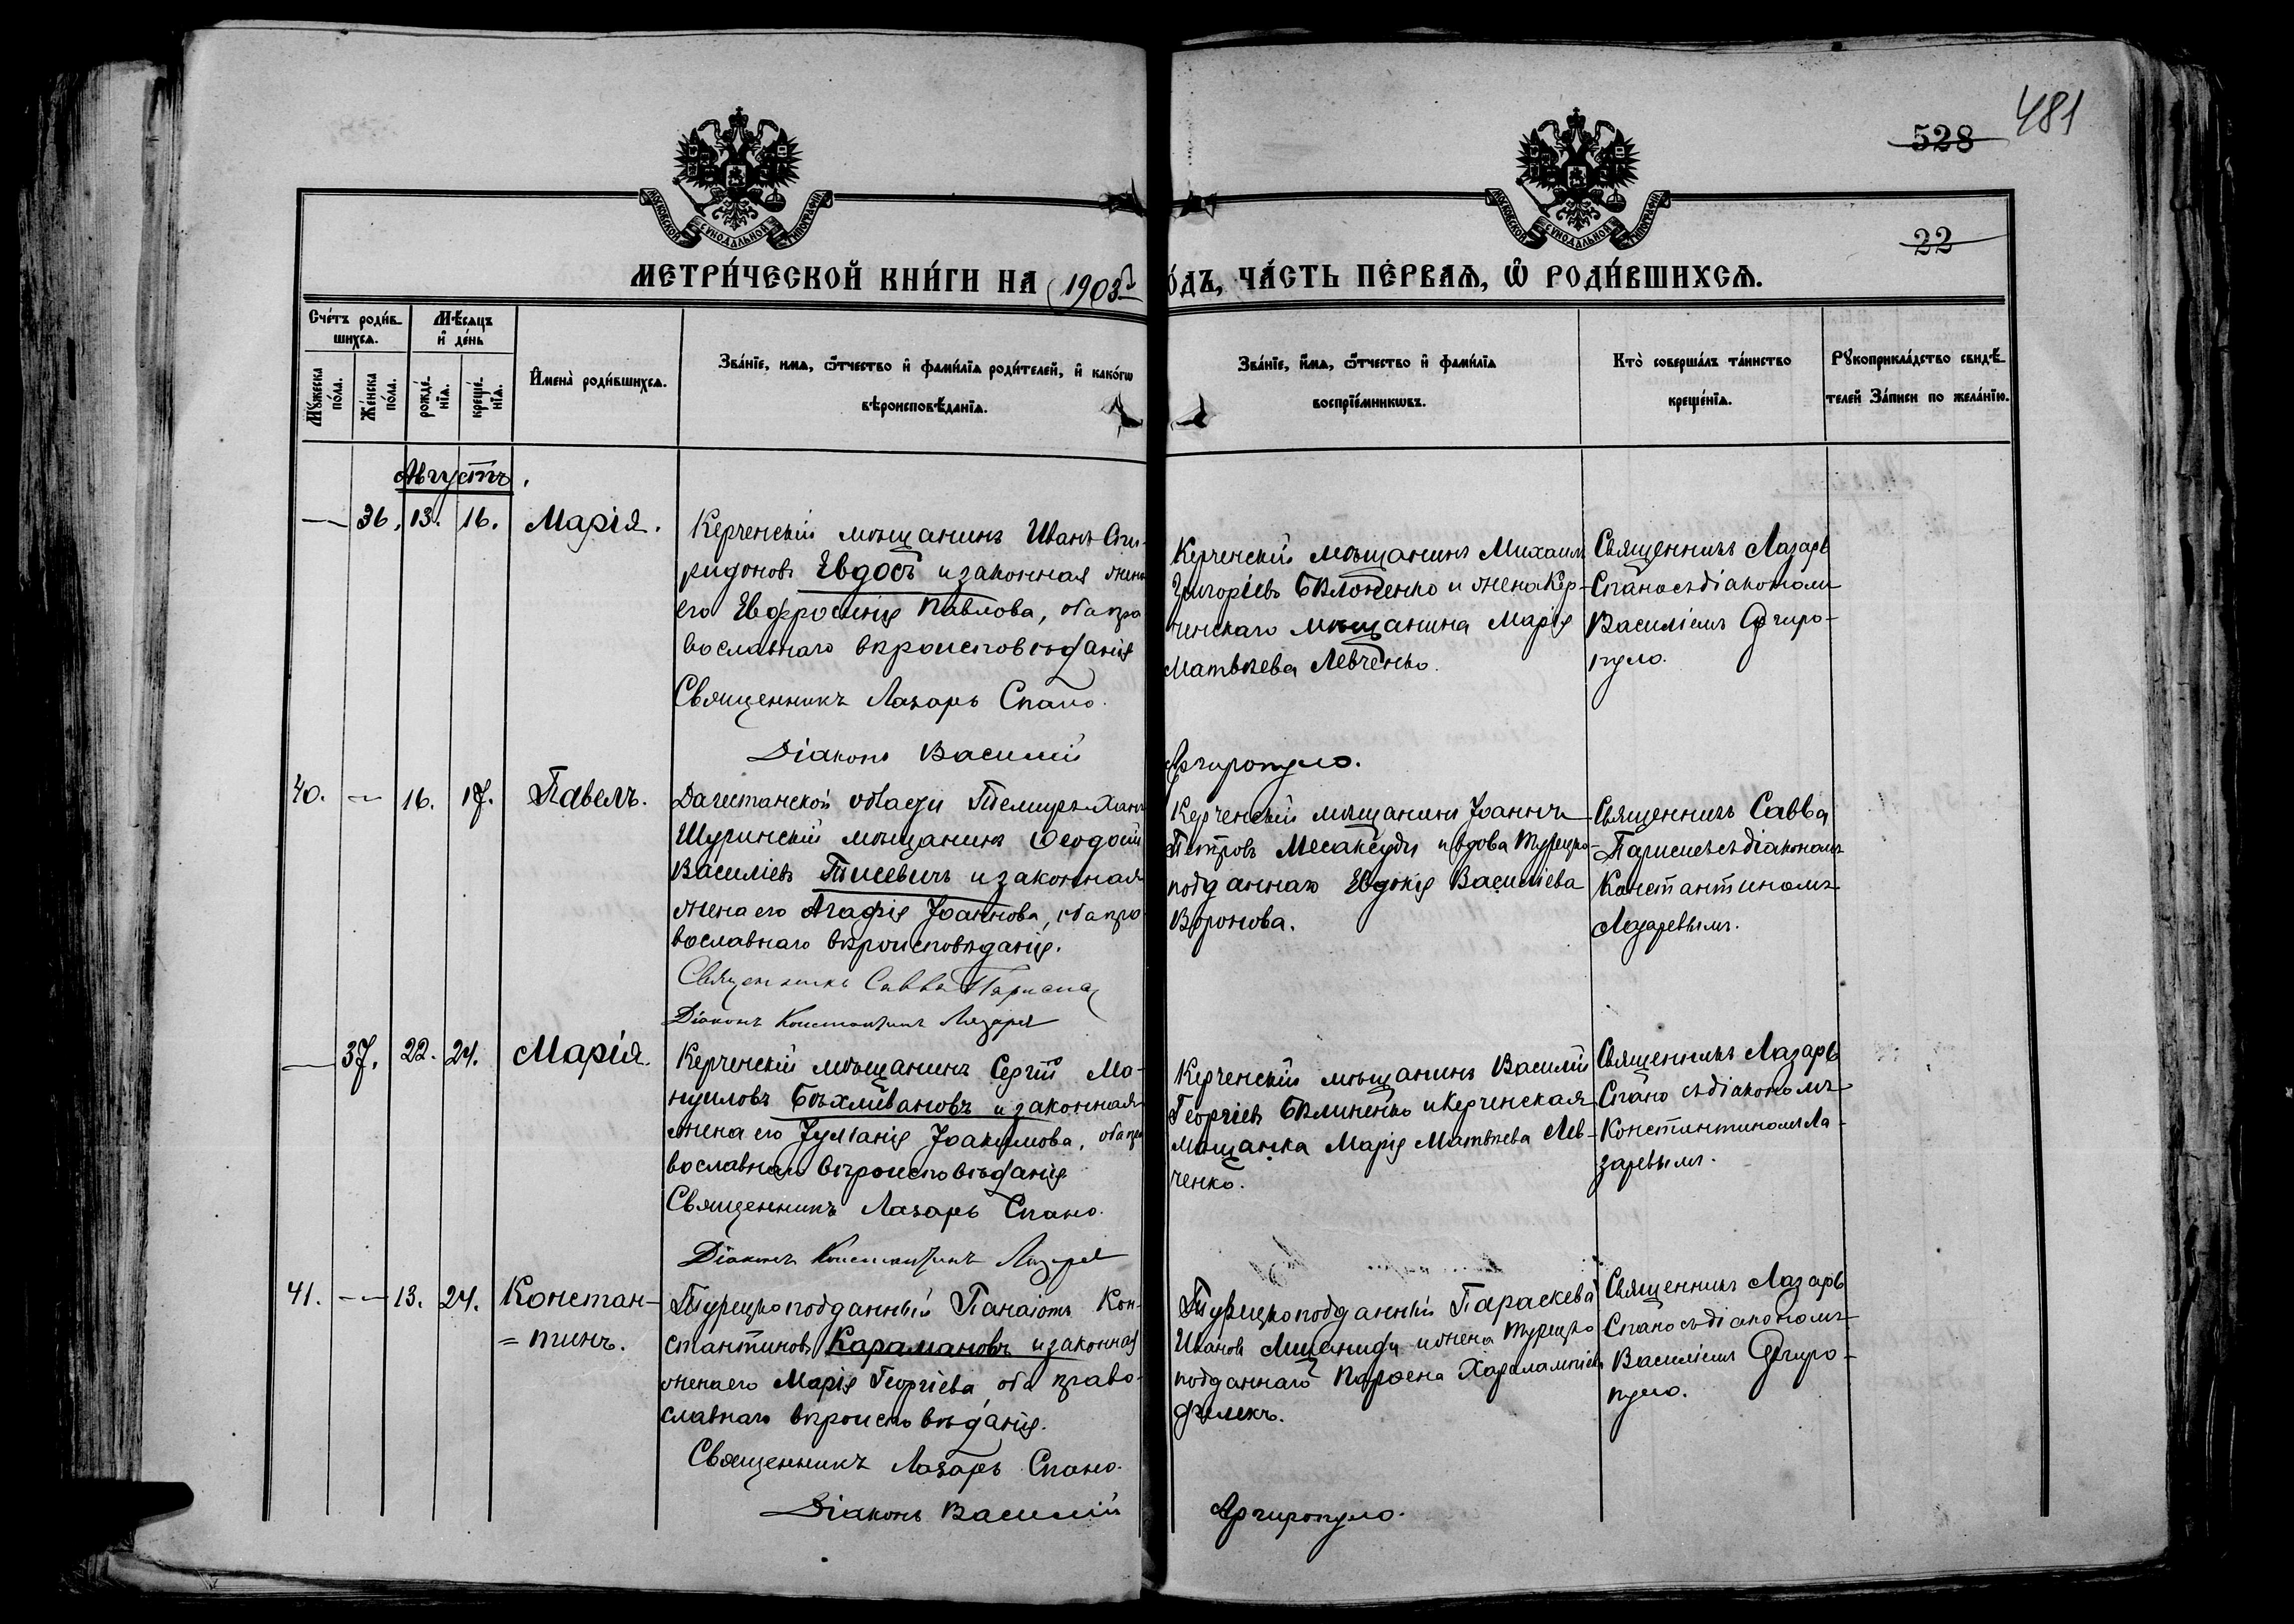 481
528
22
МОСКОВСКОЙ СѴНОДАЛЬНОЙ ТИПОГРАФІИ
МОСКОВСКОЙ СѴНОДАЛЬНОЙ ТИПОГРАФІИ
МЕТРИ́ЧЕСКОЙ КНИ́ГИ НА 1903й
ОДЪ, ЧА́СТЬ ПЕ́РВАѦ, Ѡ РОДИ́ВШИХСѦ.
Сче́тъ роди́в-
шихсѧ.
Мѣ́сѧцъ
и де́нь
Мꙋ́жеска
по́ла.
Же́нска
по́ла.
рожде́-
нїѧ.
креще́-
нїѧ.
Имена̀ роди́вшихсѧ.
Зва́нїе, имѧ, ѻ́тчество и фами́лїѧ роди́телей, и како́гѡ
вѣроисповѣ́данїѧ.
Зва́нїе, и́мѧ, ѻ́тчество и фами́лїѧ
воспрїе́мникѡвъ.
Кто̀ соверша́лъ та́инство
креще́нїѧ.
Рꙋкоприкла́дство свидѣ́-
телей За́писи по жела́нїю.
Августъ.
— 36. 13. 16. Марія.
Керченскій мѣщанинъ Иванъ Спи-
ридоновъ Евдосъ и законная жена
его Евфросинія Павлова, оба пра
вославнаго вѣроисповѣданія
Священникъ Лазарь Спано.
Діаконъ Василій
Керченскій мѣщанинъ Михаил
Григоріевъ Бѣлоненко и жена Кер-
ченскаго мѣщанина Марія
Матвѣева Левченко.
Аргиропуло.
Священникъ Лазарь
Спано съ діакономъ
Василіемъ Аргиро-
пуло.
40. — 16. 17. Павелъ.
Дагестанской области Темиръ-Ханъ
Шуринскій мѣщанинъ Ѳеодосій
Василіевъ Тисевичъ и законная
жена его Агафія Іоаннова, оба пра
вославнаго вѣроисповѣданія.
Священникъ Савва Париса
Діаконъ Константинъ Лазарев
Керченскій мѣщанинъ Іоаннъ
Петровъ Месаксуди и вдова турецко-
подданнаго Евдокія Василіева
Воронова.
Священникъ Савва
Парисиемъ съ діакономъ
Константиномъ
Лазаревымъ.
— 37. 22. 24. Марія.
Керченскій мѣщанинъ Сергій Ма-
нуиловъ Бѣхливановъ и законная
жена его Іуліанія Іоакимова, оба пра
вославнаго вѣроисповѣданія
Священникъ Лазарь Спано.
Діаконъ Константинъ Лазарев
Керченскій мѣщанинъ Василій
Георгіевъ Бѣлиненко и Керченская
мѣщанка Марія Матвѣева Лев-
ченко.
Священникъ Лазарь
Спано съ діакономъ
Константиномъ Ла-
заревымъ.
41. — 13. 24. Констан-
= тинъ.
Турецкоподданный Панаіотъ Кон-
стантиновъ Карамановъ и законная
жена его Марія Георгіева, оба право-
славнаго вѣроисповѣданія.
Священникъ Лазарь Спано.
Діаконъ Василій
Турецкоподданный Параскева
Ивановъ и жена турецко
подданнаго Парѳена Харалампіева
Фелекъ.
Аргиропуло.
Священникъ Лазарь
Спано съ діакономъ
Василіемъ Аргиро-
пуло.